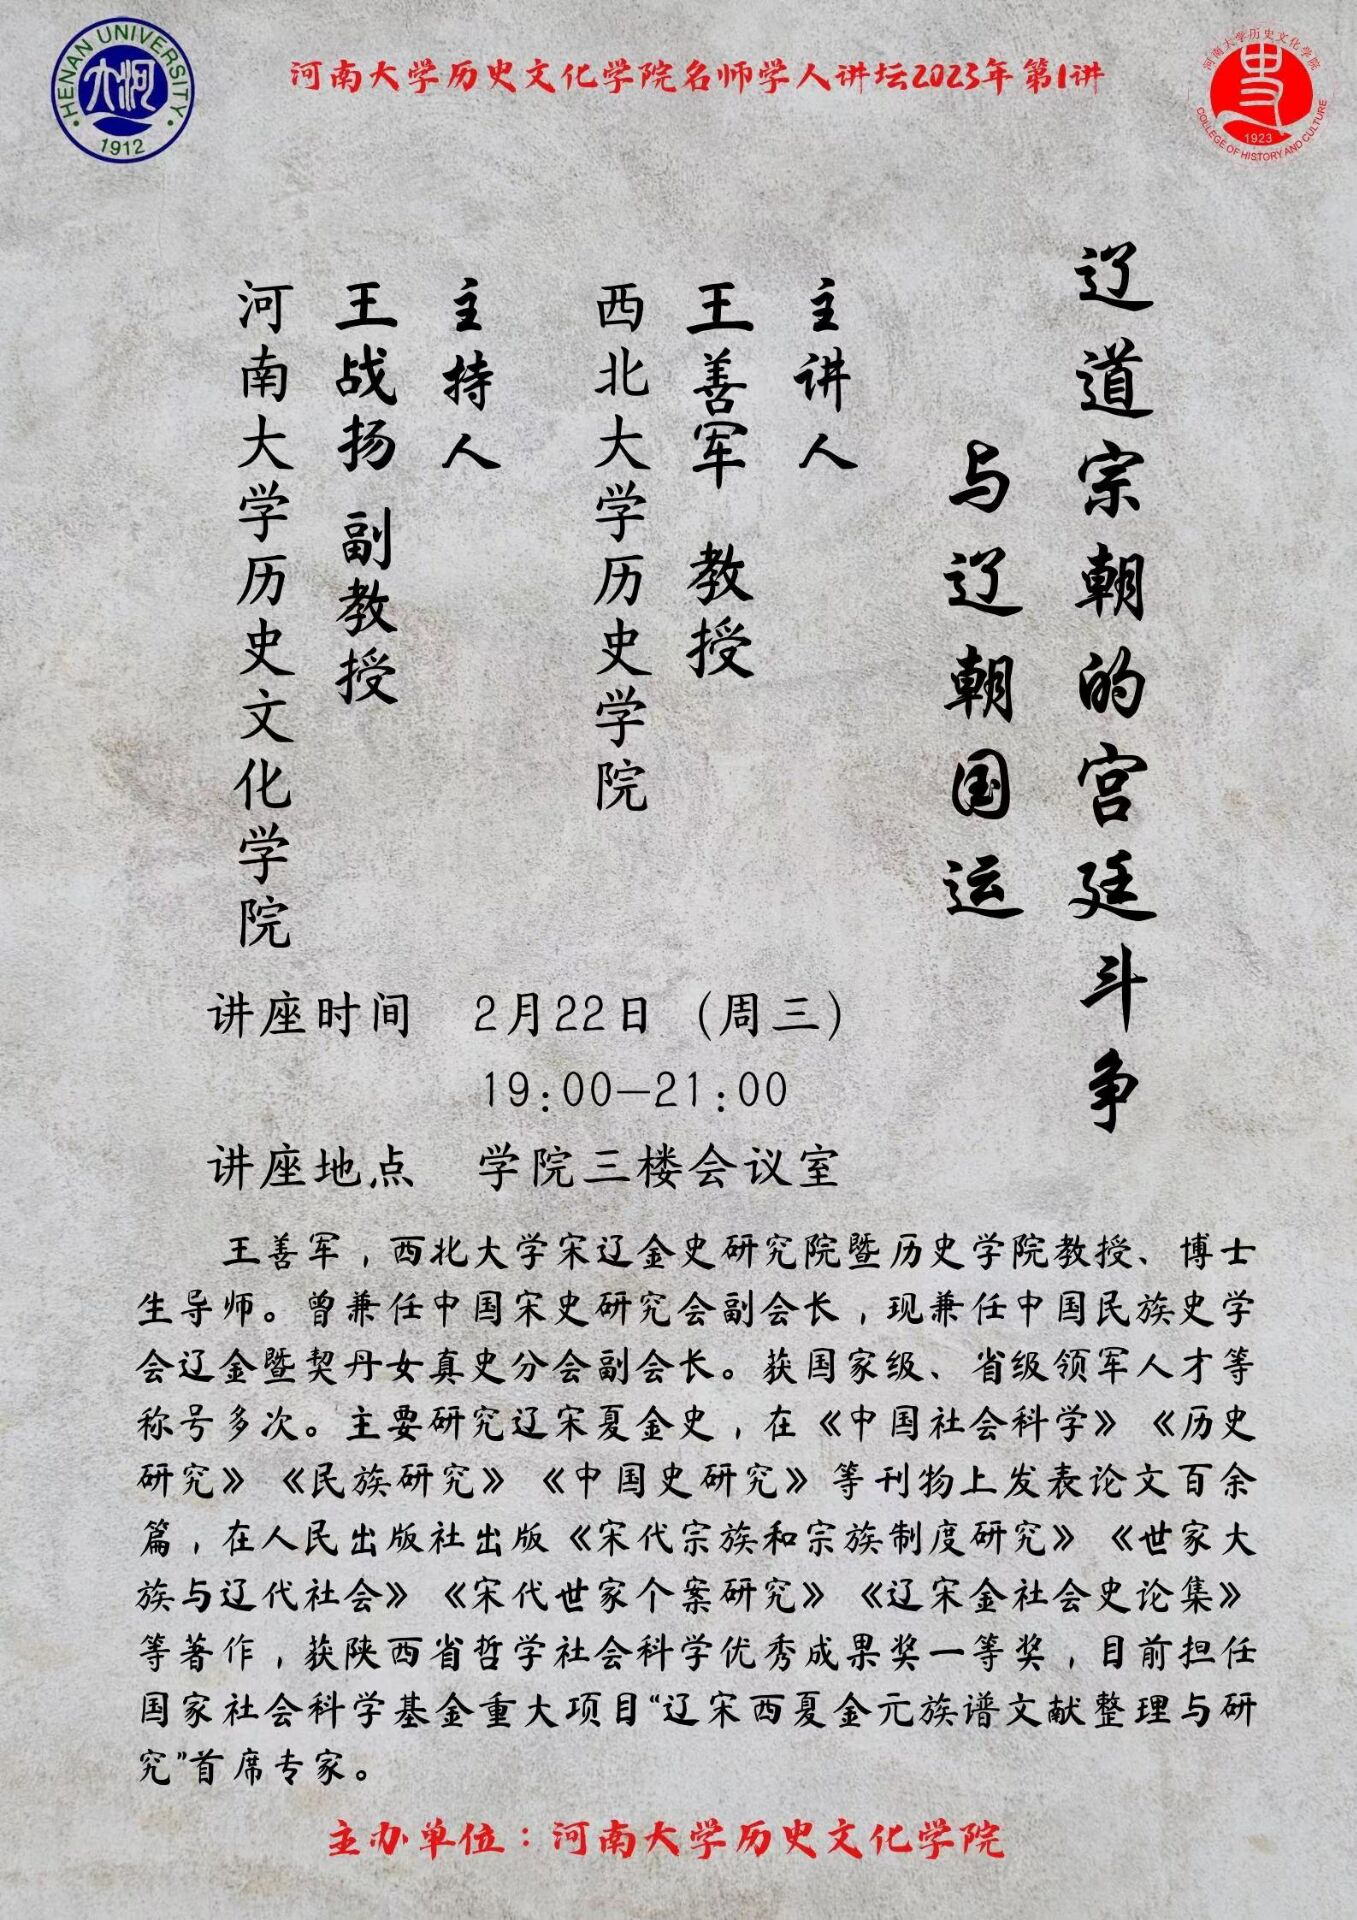 HENAN UNIVERSITY
河大
1912
河南大学历史文化学院名师学人讲坛2023年第1讲
河南大学历史文化学院
史
1923
COLLEGE OF HISTORY AND CULTURE
辽道宗朝的宫廷斗争
与辽朝国运
主讲人
王善军 教授
西北大学历史学院
主持人
王战扬 副教授
河南大学历史文化学院
讲座时间 2月22日（周三）
19:00—21:00
讲座地点 学院三楼会议室
王善军，西北大学宋辽金史研究院暨历史学院教授、博士
生导师。曾兼任中国宋史研究会副会长，现兼任中国民族史学
会辽金暨契丹女真史分会副会长。获国家级、省级领军人才等
称号多次。主要研究辽宋夏金史，在《中国社会科学》《历史
研究》《民族研究》《中国史研究》等刊物上发表论文百余
篇，在人民出版社出版《宋代宗族和宗族制度研究》《世家大
族与辽代社会》《宋代世家个案研究》《辽宋金社会史论集》
等著作，获陕西省哲学社会科学优秀成果奖一等奖，目前担任
国家社会科学基金重大项目“辽宋西夏金元族谱文献整理与研
究”首席专家。
主办单位：河南大学历史文化学院